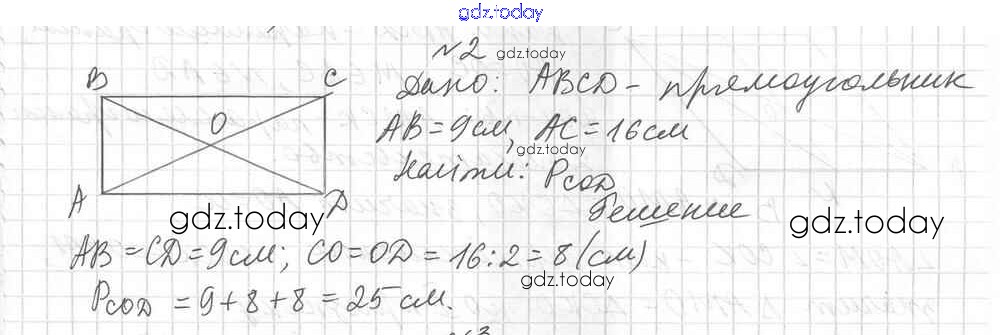 gdz.today
№2
gdz.today
Дано: ABCD – прямоугольник
B C
O
AB = 9 см, AC = 16 см
gdz.today
Найти: P_COD
A D
Решение
gdz.today
gdz.today
AB = CD = 9 см; CO = OD = 16 : 2 = 8 (см)
P_COD = 9 + 8 + 8 = 25 см.
gdz.today